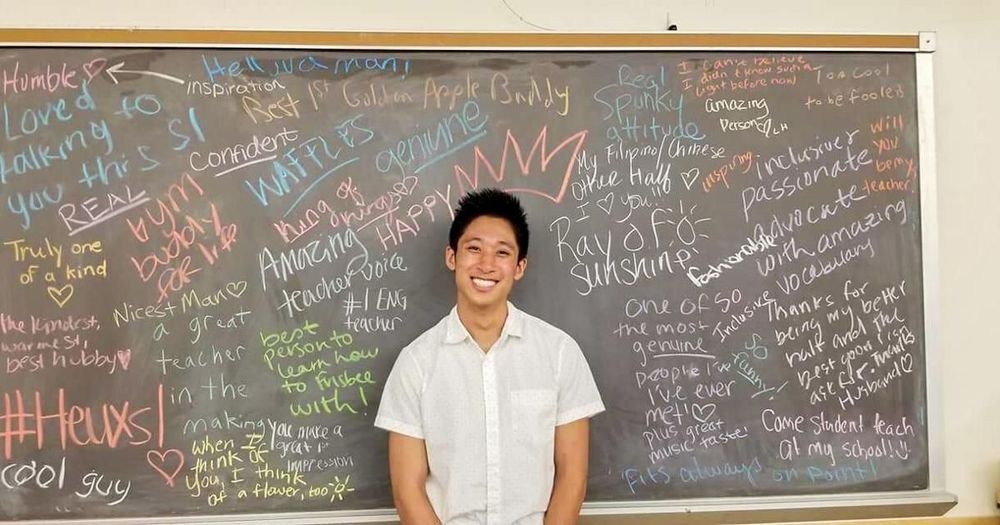 Humble
Loved to
talking to
you this SI
REAL
Truly one
of a kind
the kindest,
warmest,
best hubby
#Heuxs1
cool guy
inspiration
Confident
gym
buddy
for life
Nicest Man
a great
teacher
in the
making
when I
think of
you, I think
of a flower, too
Hell, ya man!
Best 1st Golden Apple Buddy
WAFFLES
genuine
king of
HAPPY
Amazing
teacher voice
#1 ENG
teacher
best
person to
learn how
to frisbee
with!
You make a
great 1st
impression
Real
Spunky
attitude
My Filipino/Chinese
other Half
I you!!
Ray of
sunshine
one of
the most
genuine
people I
I've ever
met!
plus great
music taste!
SO
Funny
Fits always on Point!
I can't believe
I didn't know such a
light before now!
amazing
Person LH
inspiring
fashionable
Inclusive
Too cool
to be fooled
will
you
be my
teacher?
inclusive
passionate
advocate
with amazing
vocabulary
Thanks for
being my better
half and the
best
Husband
Come student teach
at my school!!